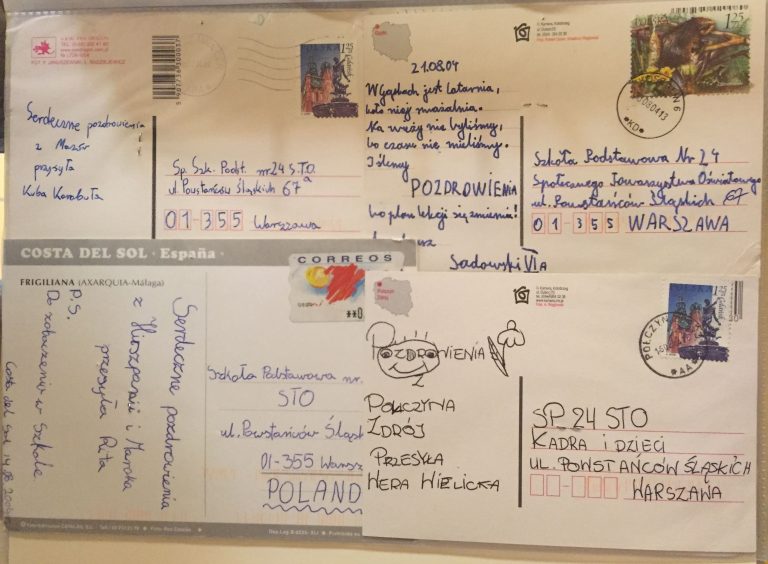 Serdeczne pozdrowienia
z Mazur
przesyła
Kuba Karabuła
POLSKA
1,25
Sp. Szk. Podst. nr 24 S.T.O.
ul. Powstańców Śląskich 67a
01-355 Warszawa
21.08.04
W Gąskach jest latarnia,
koło niej smażalnia.
Na wieży nie byliśmy,
bo czasu nie mieliśmy.
I ślemy
POZDROWIENIA
bo plan lekcji się zmienia!
Sadowski VIa
1,25
Szkoła Podstawowa Nr 24
Społecznego Towarzystwa Oświatowego
ul. Powstańców Śląskich 67
01355 WARSZAWA
COSTA DEL SOL · España
FRIGILIANA (AXARQUIA-Málaga)
CORREOS
Serdeczne pozdrowienia
z Hiszpanii i Maroka
przesyła Rita
P.S.
Do zobaczenia w Szkole
Costa del Sol 14.08
Szkoła Podstawowa nr.
STO
ul. Powstańców Śląsk
01-355 Warsz
POLAND
POZDROWIENIA
Z
POŁCZYNA
ZDRÓJ
PRZESYŁA
WERA WIELICKA
POŁCZYN
SP 24 STO
KADRA I DZIECI
UL. POWSTAŃCÓW ŚLĄSKICH
WARSZAWA